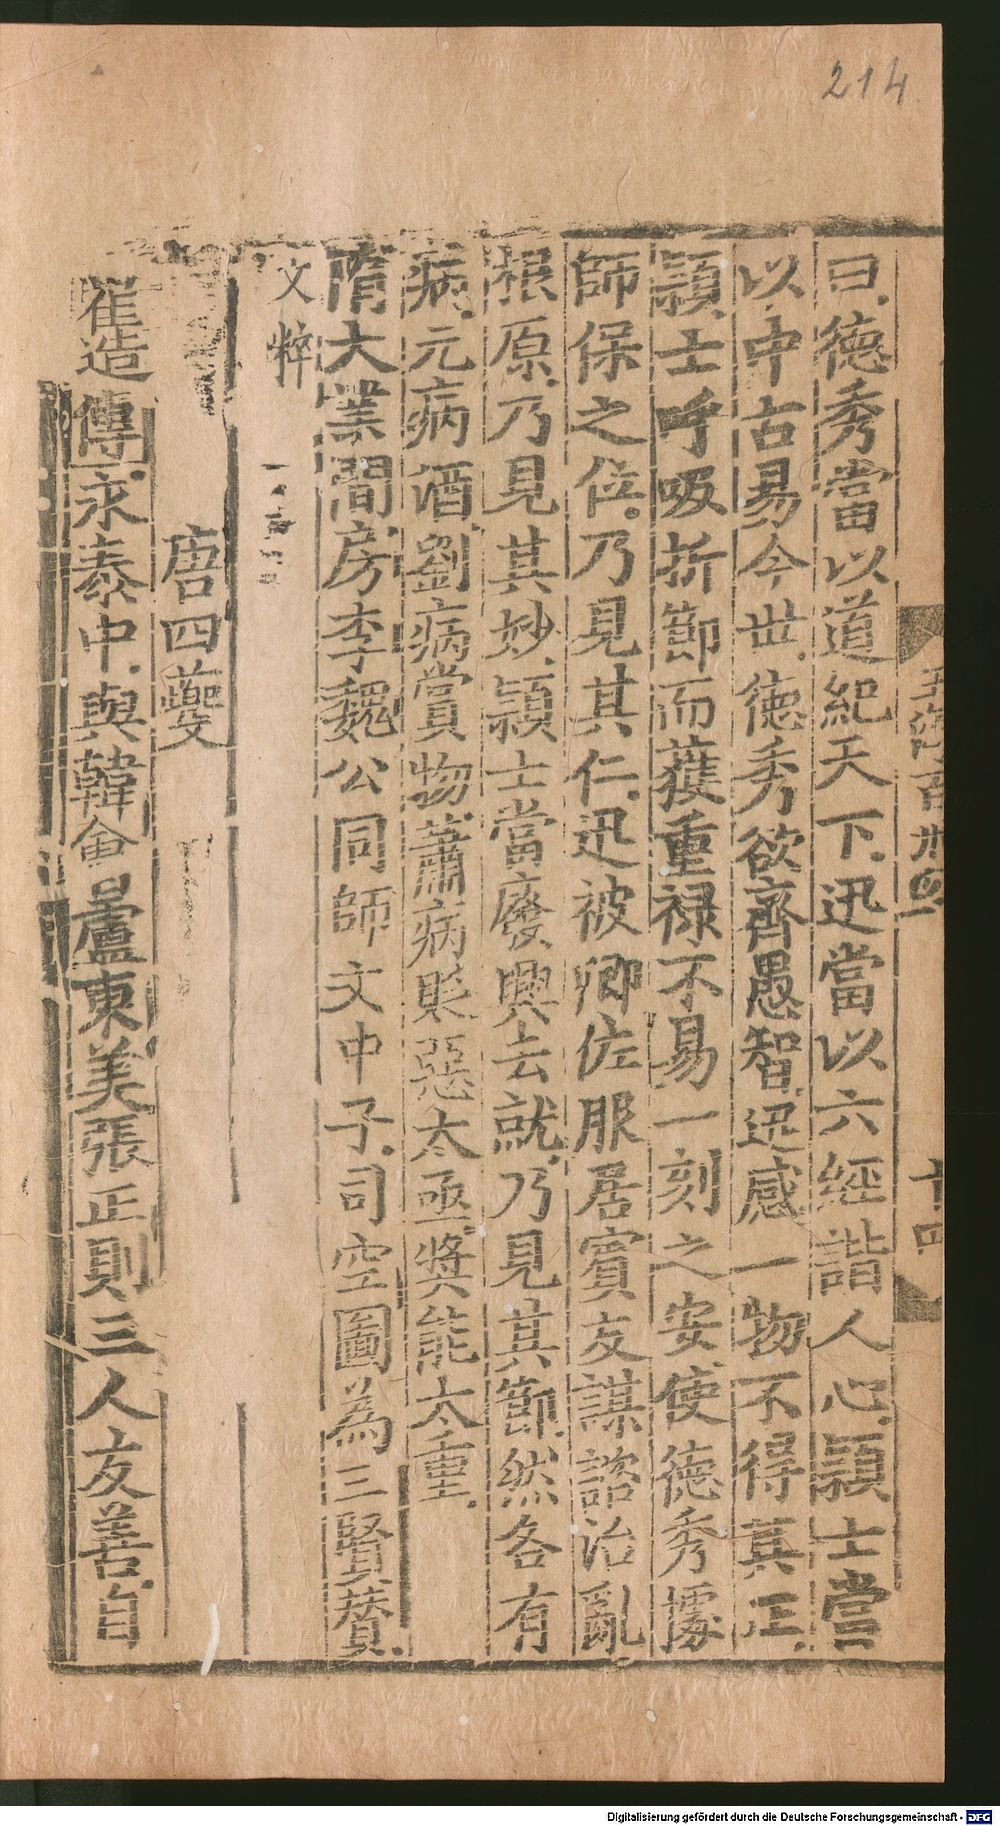 214
曰德秀當以道紀天下迅當以六經諧人心頴士當
以中古易今世德秀欲齊愚智迅感一物不得其正
頴士呼吸折節而獲重禄不易一刻之安使德秀據
師保之位乃見其仁迅被卿佐服居賓友謀諮治亂
根原乃見其妙頴士當廢興去就乃見其節然各有
病元病酒劉病賞物蕭病貶惡太亟奬能太重
隋大業間房李魏公同師文中子司空圖為三賢賛
文粹
唐四夔
崔造傳永泰中與韓會盧東美張正則三人友善自
十四
Digitalisierung gefördert durch die Deutsche Forschungsgemeinschaft - DFG